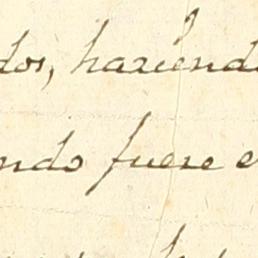 dos, haziend
ndo fuere e